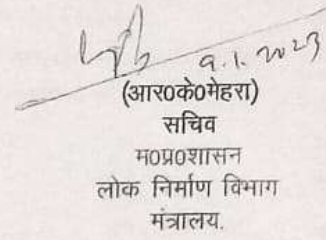 9.1.2023
(आर०के०मेहरा)
सचिव
म०प्र०शासन
लोक निर्माण विभाग
मंत्रालय.